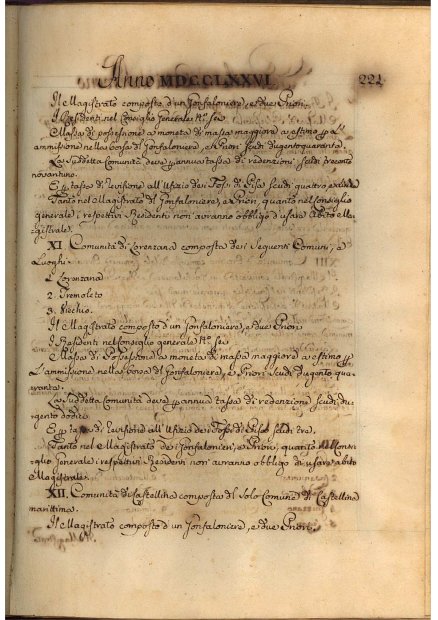 Anno MDCCLXXVI. 221
Il Magistrato composto d'un Gonfaloniere, e due Priori.
I Residenti nel Consiglio Generale N.º sei
Massa di possessione a moneta di massa maggiore a estimo p L'
ammissione nella borsa di Gonfaloniere, e Priori scudi dugentoquaranta.
La suddetta Comunità deve p annua tassa di redenzione scudi trecento
novantuno.
E p tassa di revisione all'Ufizio dei Fossi di Pisa scudi quattro
Tanto nel Magistrato di Gonfaloniere, e Priori, quanto nel Consiglio
generale i respettivi Residenti non avranno obbligo d'usare Abito Ma-
gistrale.
XI. Comunità di Lorenzana composta dei seguenti Comuni, e
Luoghi.
1. Lorenzana
2. Tremoleto
3. Vicchio.
Il Magistrato composto d'un Gonfaloniere, e due Priori
I Residenti nel Consiglio generale N.º sei
Massa di Possessione a moneta di massa maggiore a estimo p
L'ammissione nella borsa di Gonfaloniere, e Priori scudi dugento qua-
ranta.
La suddetta Comunità deve p annua tassa di redenzione scudi du-
gento dodici.
E p tassa di revisione all'Ufizio dei Fossi di Pisa scudi tre.
Tanto nel Magistrato dei Gonfalonieri, e Priori, quanto nel Consi-
glio Generale i respettivi Residenti non avranno obbligo di usare abito
Magistrale.
XII. Comunità di Castellina composta del solo Comune di Castellina
marittima.
Il Magistrato composto d'un Gonfaloniere, e due Priori.